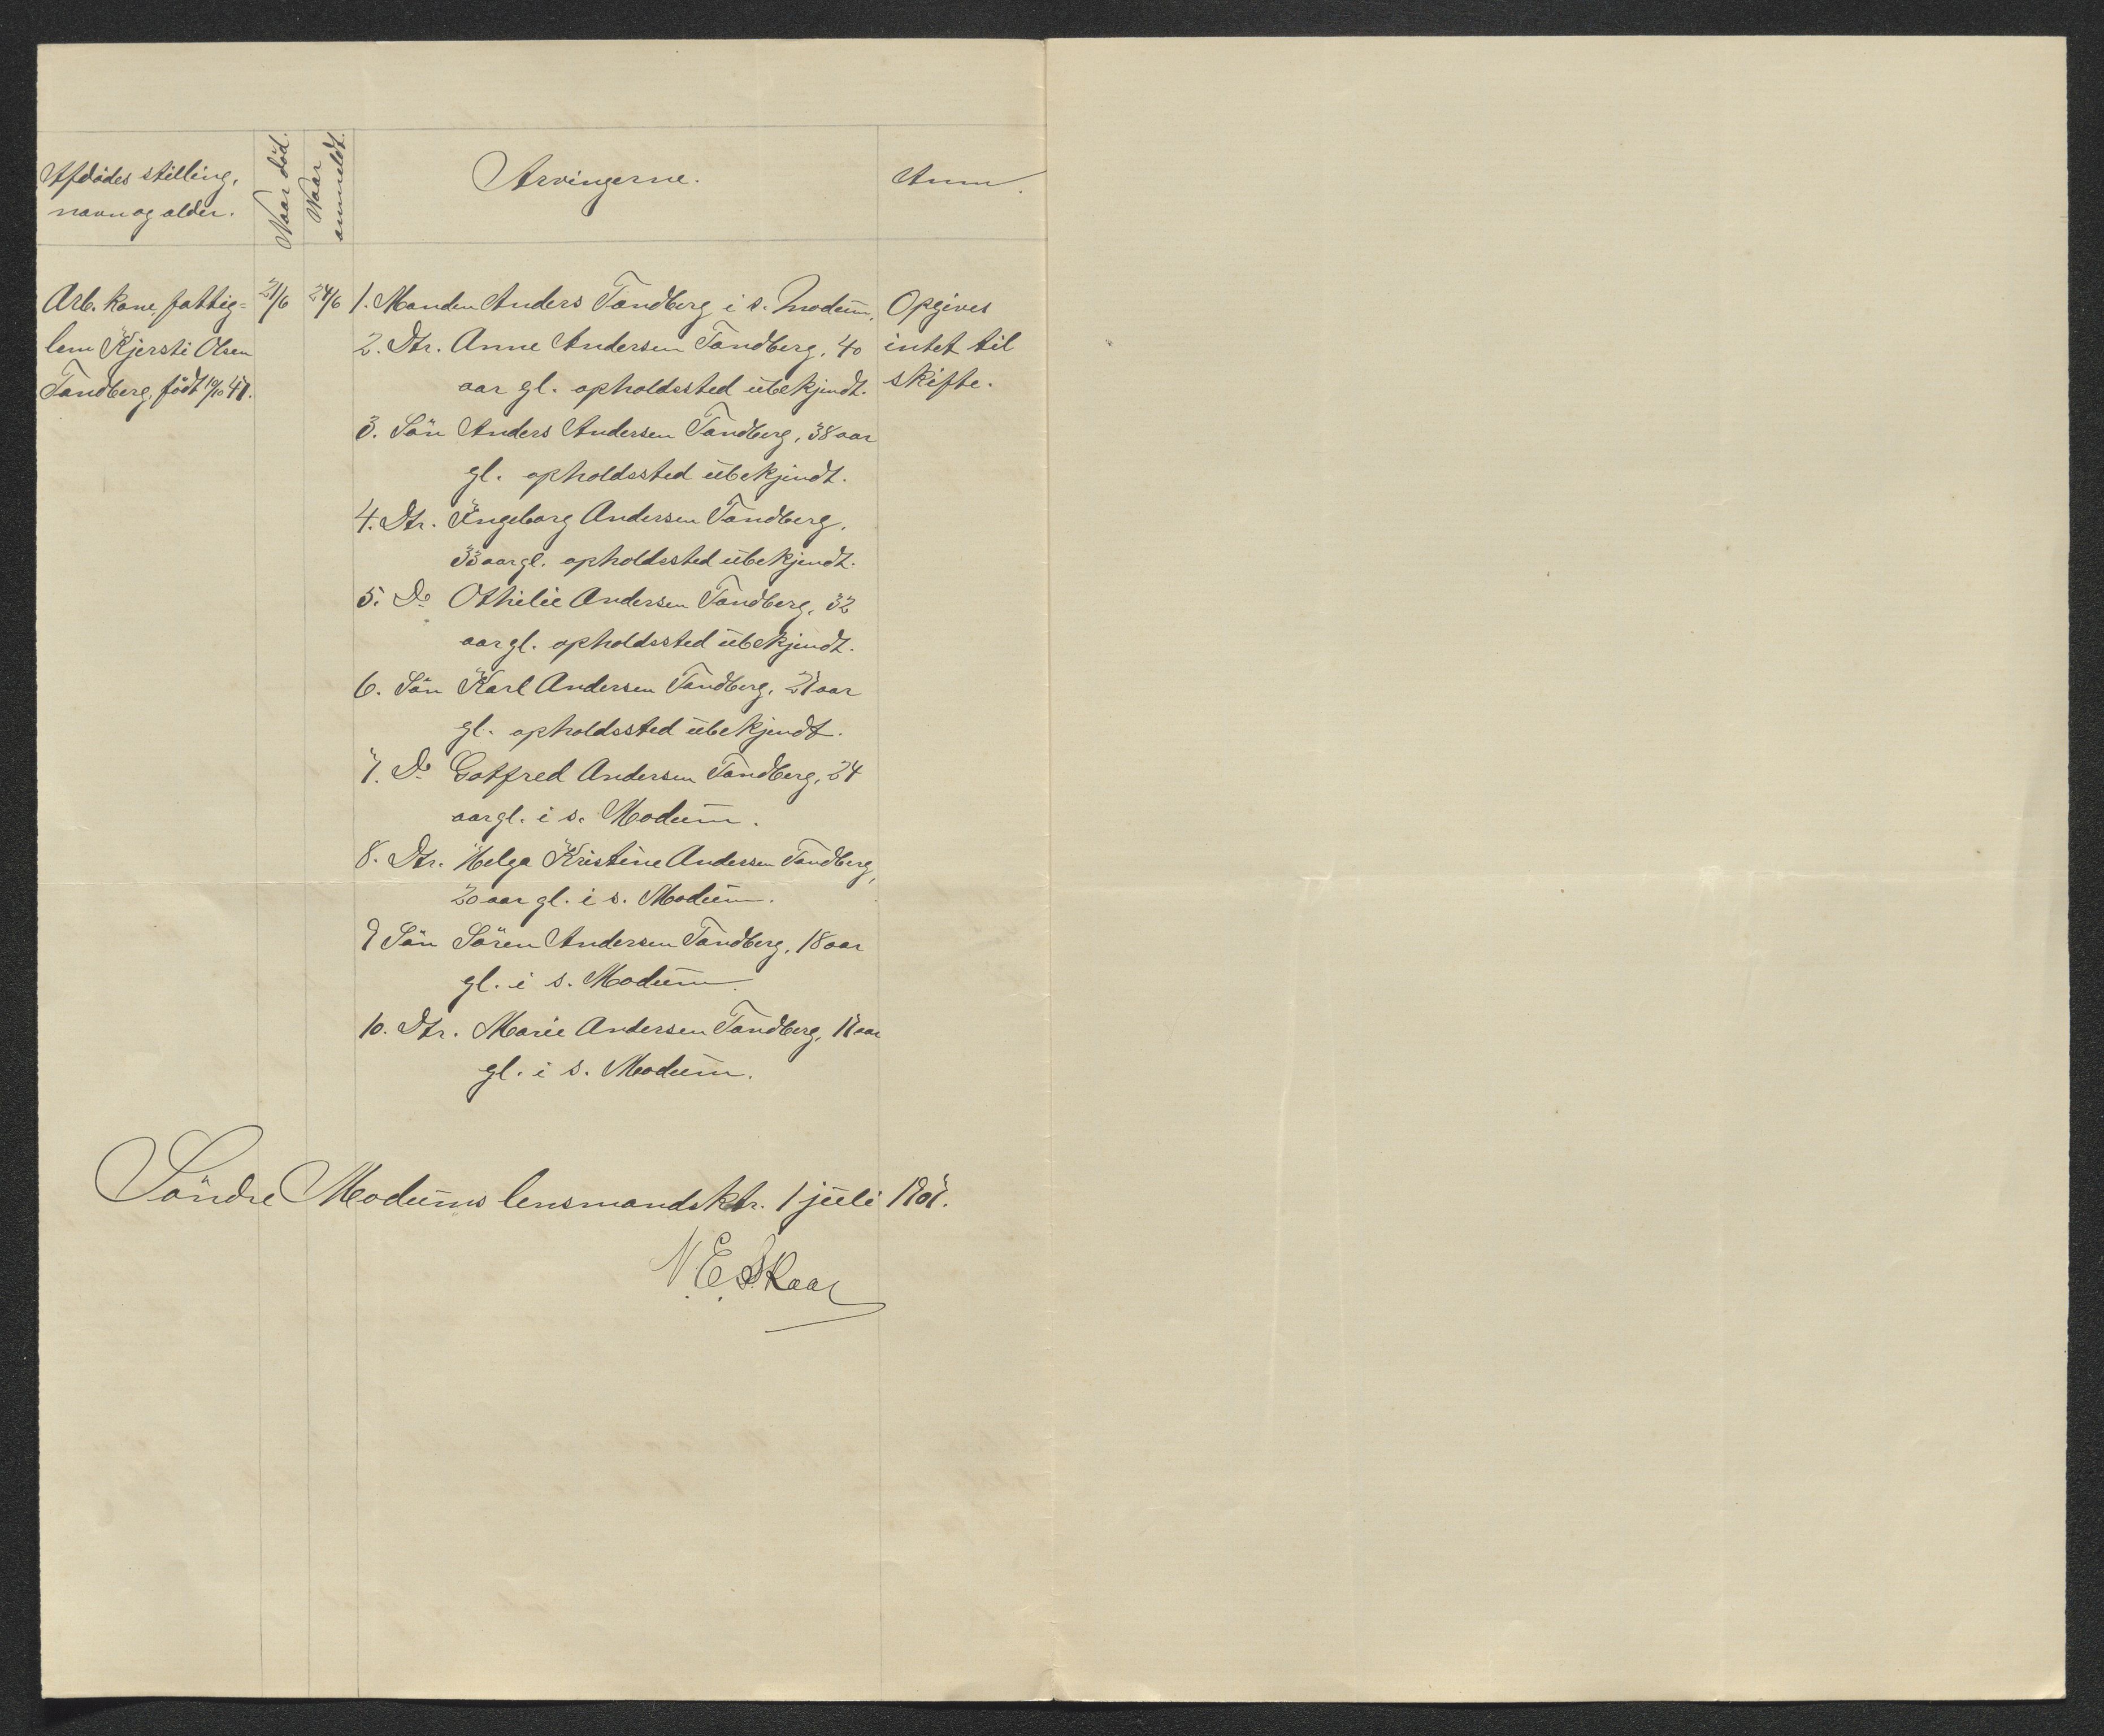 Afdødes stilling,
navn og alder.
Naar död.
Naar
anmeldt.
Arvingerne.
Anm.
Arb. kone, fattig-
lem Kjersti Olsen
Tandberg, født 19/10 47.
21/6
24/6
1. Manden Anders Tandberg i s. Modum.
2. Dtr. Anne Andersen Tandberg, 40
aar gl. opholdssted ubekjendt.
3. Sön Anders Andersen Tandberg, 38 aar
gl. opholdssted ubekjendt.
4. Dtr. Ingeborg Andersen Tandberg,
33 aar gl. opholdssted ubekjendt.
5. Do Othilie Andersen Tandberg, 32
aar gl. opholdssted ubekjendt.
6. Sön Karl Andersen Tandberg, 27 aar
gl. opholdssted ubekjendt.
7. Do Gotfred Andersen Tandberg, 24
aar gl. i s. Modum.
8. Dtr. Helga Kristine Andersen Tandberg,
20 aar gl. i s. Modum.
9 Sön Sören Andersen Tandberg, 18 aar
gl. i s. Modum.
10. Dtr. Marie Andersen Tandberg, 17 aar
gl. i s. Modum.
Opgives
intet til
skifte.
Söndre Modums lensmandsktr. 1 juli 1907.
N. E. Skaar